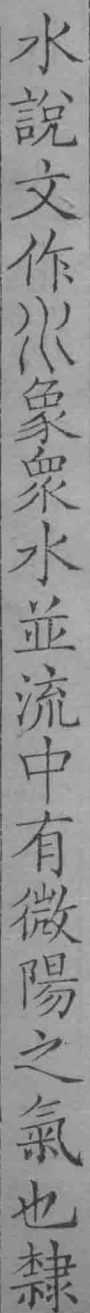 水說文作𣱱象衆水並流中有微陽之氣也隸